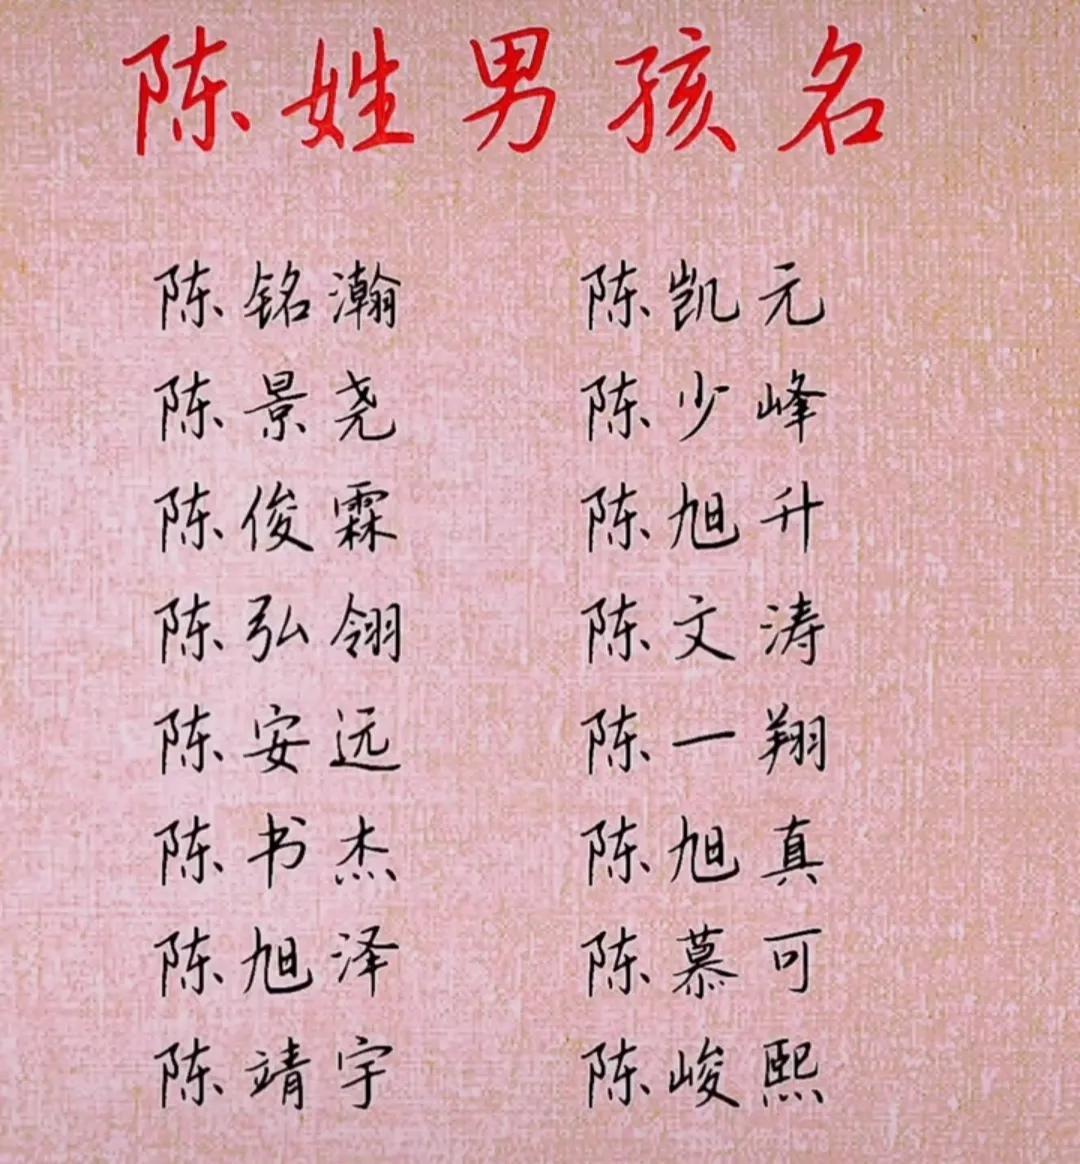 陈姓男孩名
陈铭瀚 陈凯元
陈景尧 陈少峰
陈俊霖 陈旭升
陈弘翎 陈文涛
陈安远 陈一翔
陈书杰 陈旭真
陈旭泽 陈慕可
陈靖宇 陈峻熙